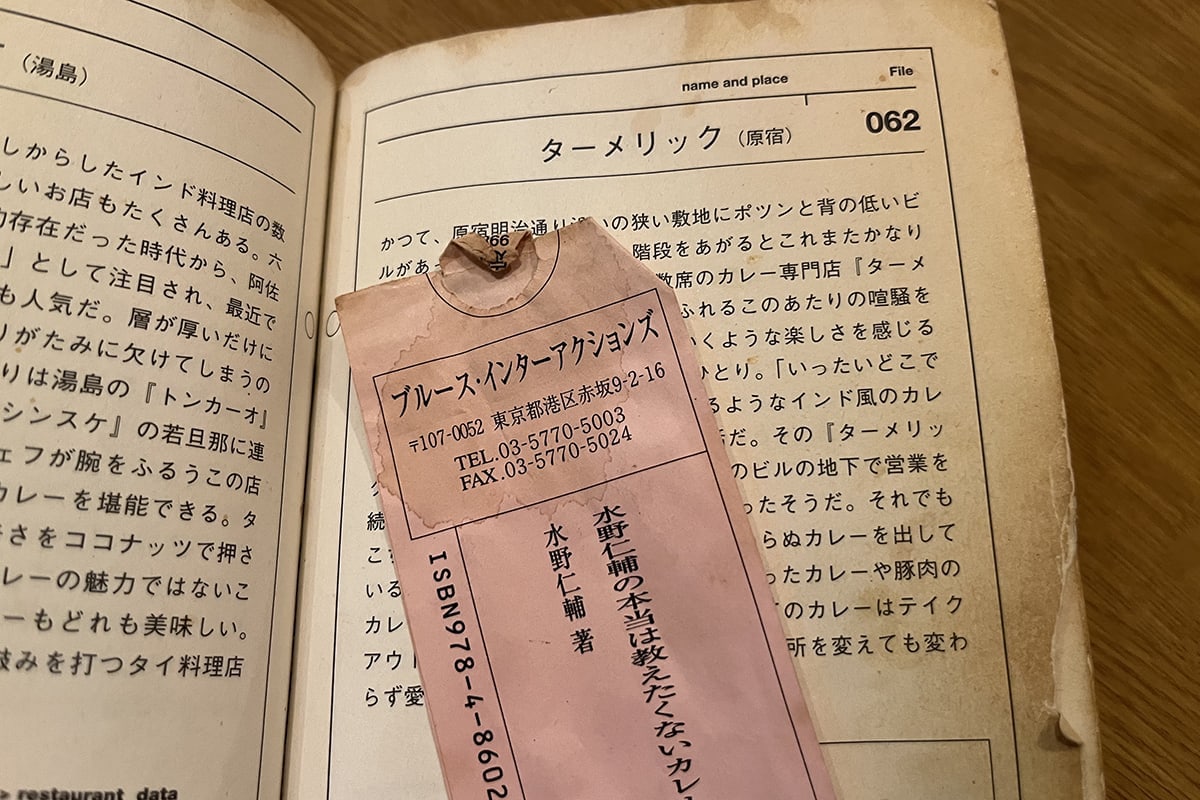 （湯島）
しからしたインド料理店の数
しいお店もたくさんある。六
存在だった時代から、阿佐
」として注目され、最近で
も人気だ。層が厚いだけに
りがたみに欠けてしまうの
りは湯島の『トンカーオ』
シンスケ』の若旦那に連
ェフが腕をふるうこの店
カレーを堪能できる。タ
さをココナッツで押さ
レーの魅力ではないこ
ーもどれも美味しい。
鼓みを打つタイ料理店
restaurant data
name and place
File
ターメリック（原宿）
062
かつて、原宿明治通り沿いの狭い敷地にポツンと背の低いビ
ルがあっ
階段をあがるとこれまたかなり
数席のカレー専門店『ターメ
ふれるこのあたりの喧騒を
いくような楽しさを感じる
ひとり。「いったいどこで
るようなインド風のカレ
だ。その『ターメリッ
のビルの地下で営業を
続
ったそうだ。それでも
こ
らぬカレーを出して
いる
ったカレーや豚肉の
カレ
のカレーはテイク
アウト
所を変えても変わ
らず愛
ブルース・インターアクションズ
〒107-0052 東京都港区赤坂9-2-16
TEL.03-5770-5003
FAX.03-5770-5024
水野仁輔の本当は教えたくないカレー
水野仁輔 著
ISBN978-4-8602